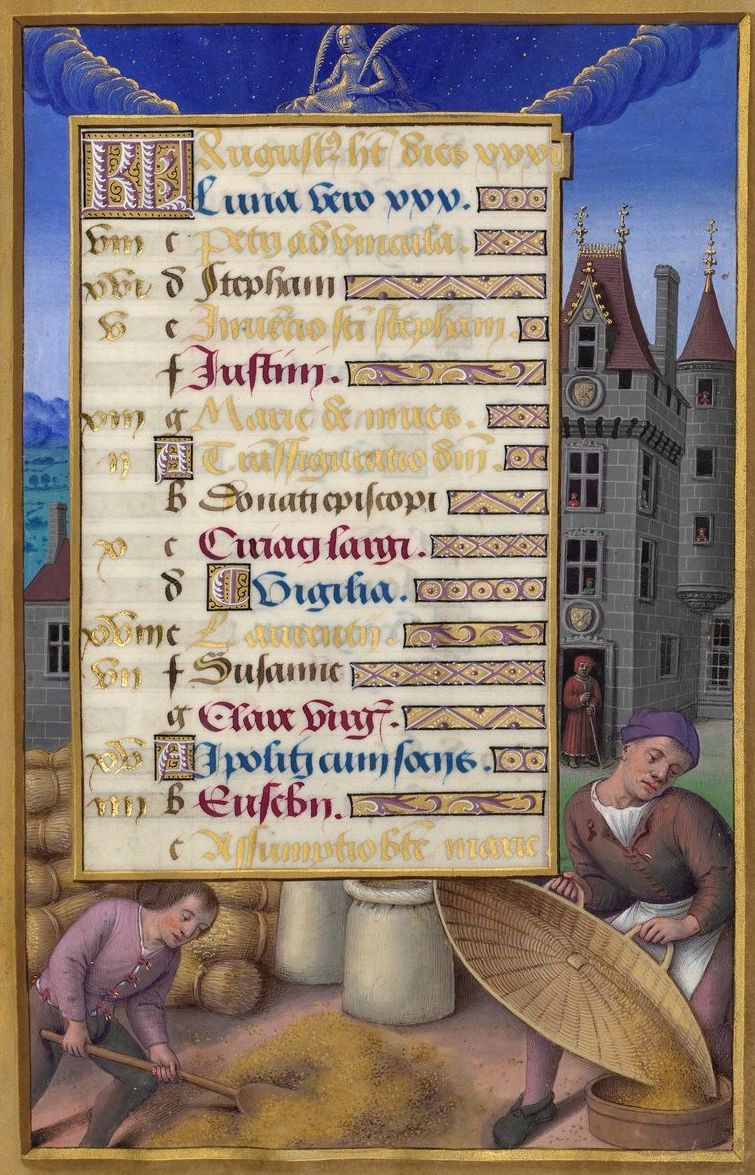 KL Augustꝰ ht dies xxxi
Luna vero xxx.
viii c Petri ad vincula.
xvi d Stephani
v e Inuẽtio sti stephani.
f Iustini.
xiii g Marie de niues.
ii A Trãsfiguratio dni.
b Donati episcopi
x c Ciriaci largi.
d Vigilia.
xviii e Laurentii.
vii f Susanne
g Clare virgꝭ.
xv A Ipoliti cum sociis.
iiii b Eusebii.
c Assumptio bte marie.